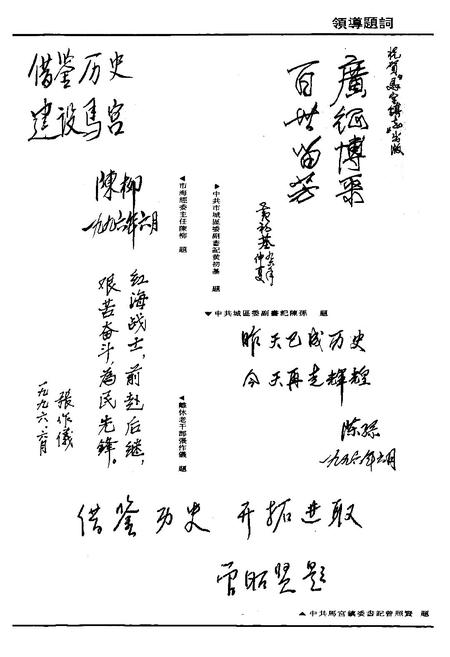 領導題詞
祝賀《馬宮鎮志》出版
百世留芳
黃初基
仲夏
▶中共市城區委副書記黃初基 題
借鉴历史
建设馬宫
陳柳
一九九六年六月
◀市海經委主任陳柳 題
▼中共城區委副書記陳孫 題
昨天已成历史
今天再走辉煌
陈孫
一九九六年六月
红海战士，前赴后继，
艰苦奋斗，为民先锋。
張作儀
一九九六、六月
◀離休老干部張作儀 題
借鉴历史 开拓进取
▲中共馬宮鎮委書記曾照賢 題